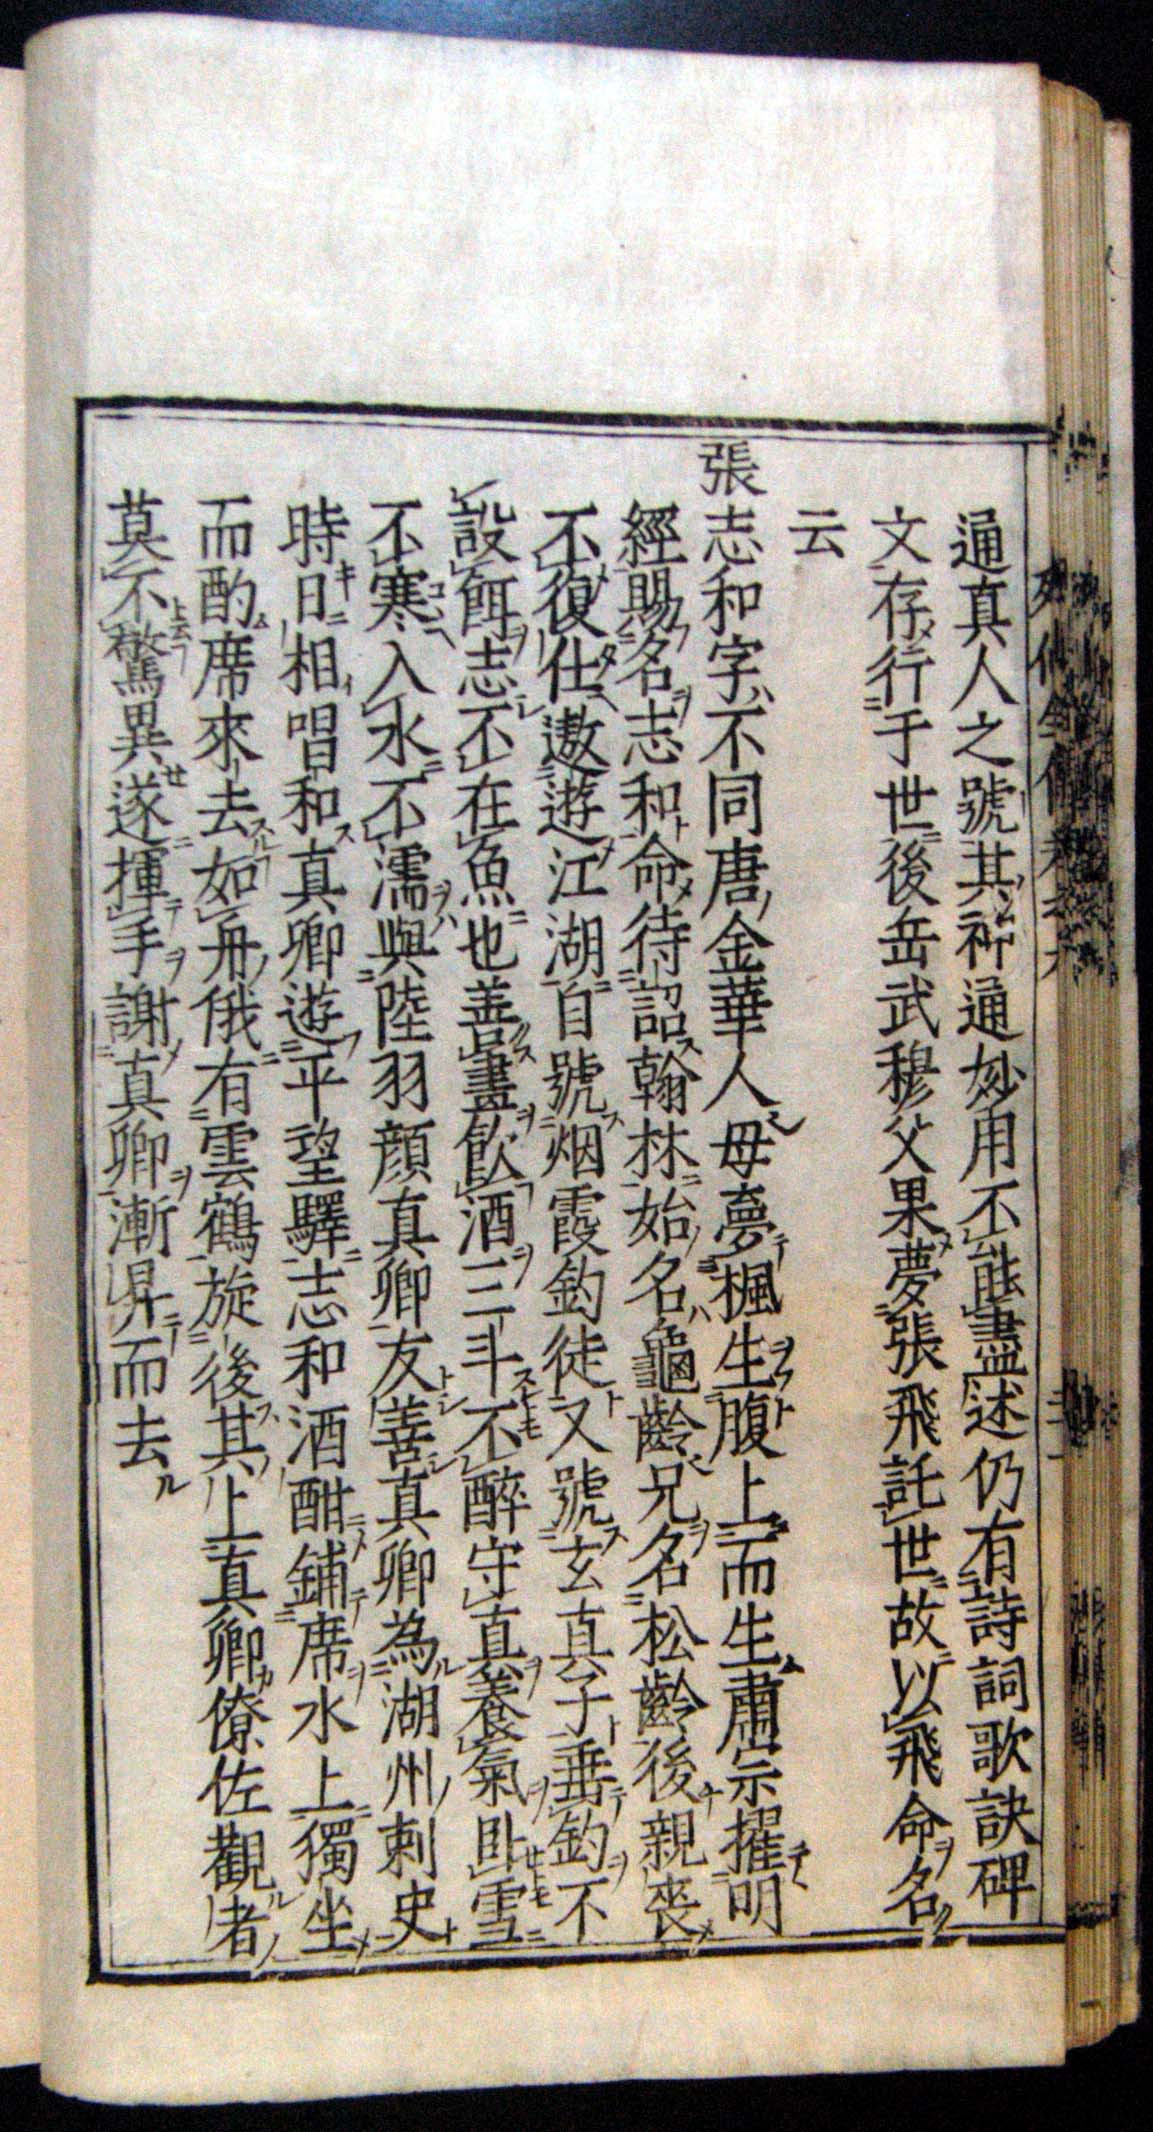 通真人之號其神通妙用不能盡述仍有詩詞歌訣碑
文存行于世後岳武穆父果夢張飛託世故以飛命名
云
張志和字不同唐金華人母夢楓生腹上而生肅宗擢明
經賜名志和命待詔翰林始名龜齡兄名松齡後親喪
不復仕遨遊江湖自號烟霞釣徒又號玄真子垂釣不
設餌志不在魚也善畫飲酒三斗不醉守真養氣臥雪
不寒入水不濡與陸羽顔真卿友善真卿為湖州刺史
時日相唱和真卿遊平望驛志和酒酣鋪席水上獨坐
而酌席來去如舟俄有雲鶴旋後其上真卿僚佐觀者
莫不驚異遂揮手謝真卿漸昇而去